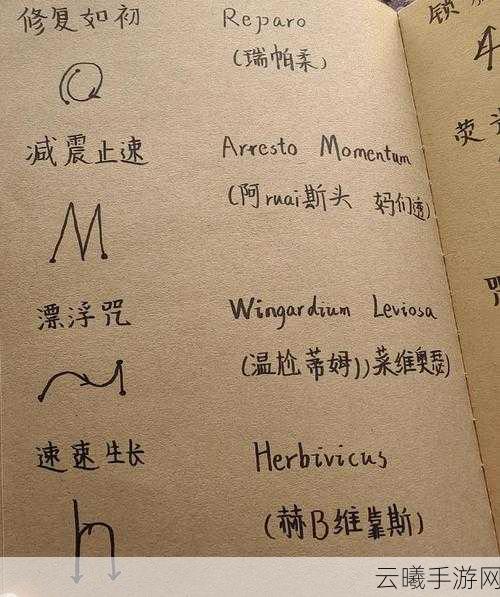 修复如初 Reparo
(瑞帕柔)
减震止速 Arresto Momentum
(阿ruai斯头 妈们透)
漂浮咒 Wingardium Leviosa
(温尬蒂姆))菜维奥瑟)
速速生长 Herbivicus
(赫B维靠斯)
锁
荧
咒
云曦手游网